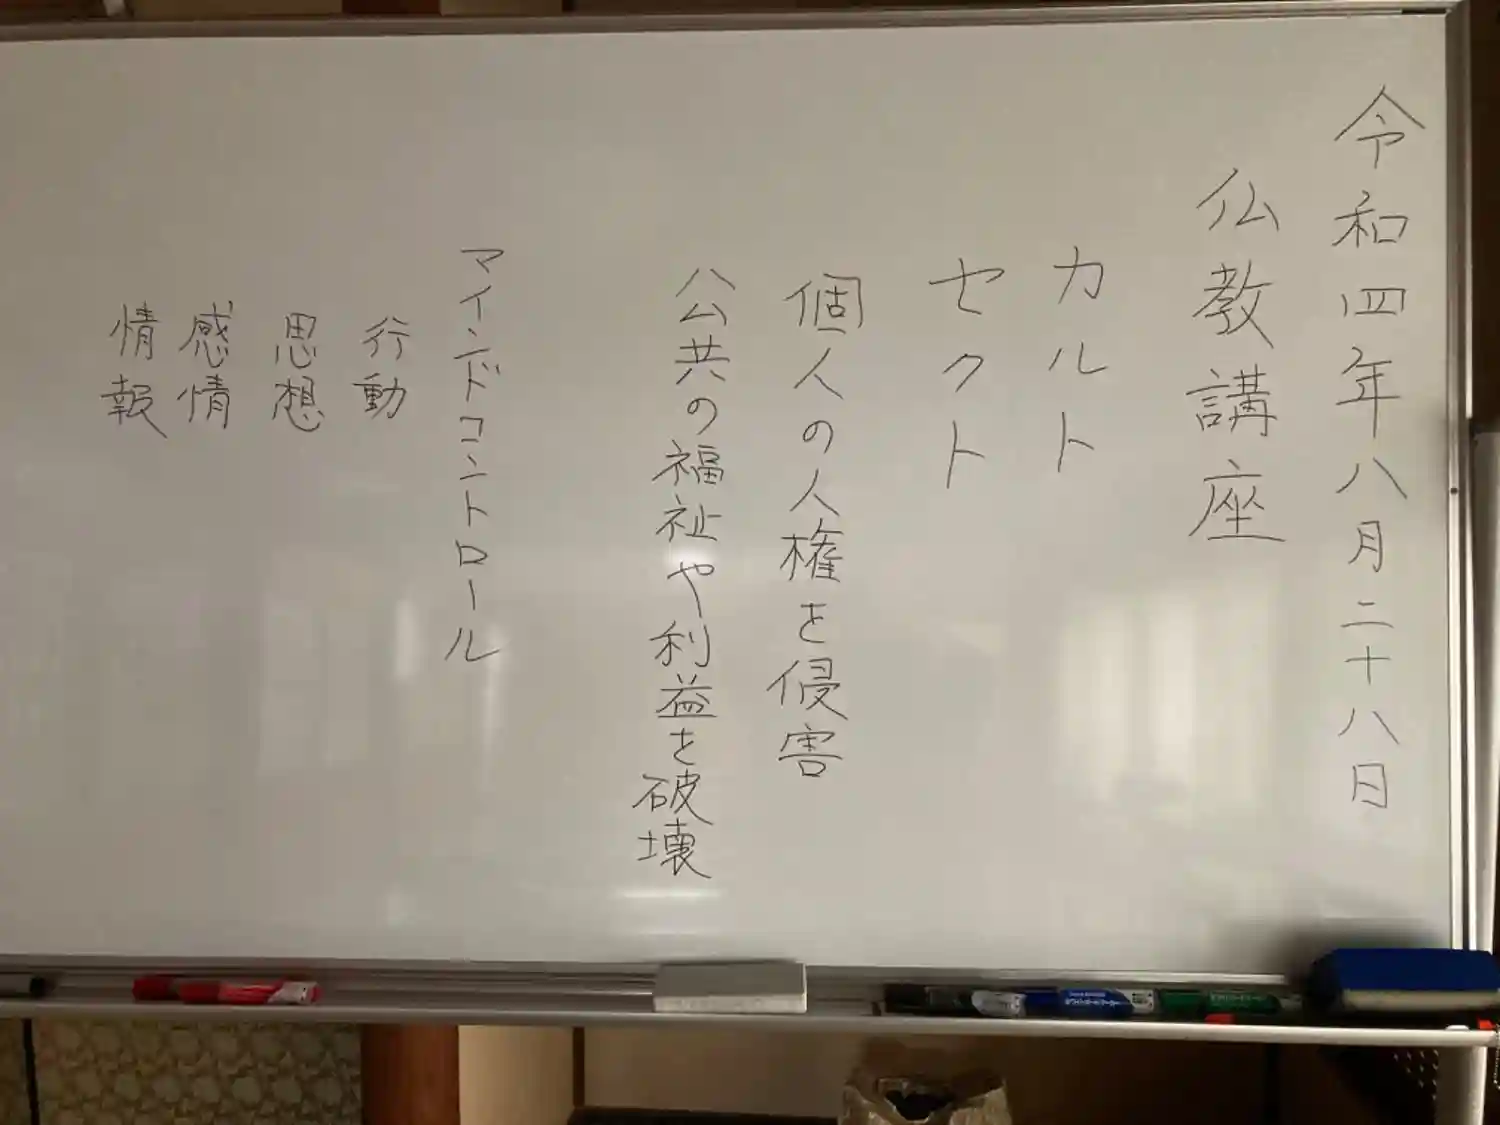 令和四年八月二十八日
仏教講座
カルト
セクト
個人の人権を侵害
公共の福祉や利益を破壊
マインドコントロール
行動
思想
感情
情報